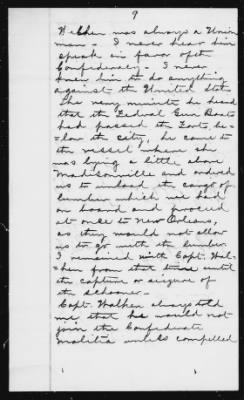 9
Walker was always a Union
man - I never hear him
speak in favor of the
Confederacy - I never
knew him to do anything
against the United States
The very minute he heard
that the Federal Gun Boats
had passed the Forts be=
low the City, he came to
the vessel where she
was lying a little above
Madisonville and ordered
us to unload the cargo of
lumber which we had
on board and proceed
at once to New Orleans,
as they would not allow
us to go with the lumber.
I remained with Capt. Wal-
ker from that time until
the capture or seizure of
the schooner -
Capt. Walker always told
me that he would not
join the Confederate
malitia until compelled